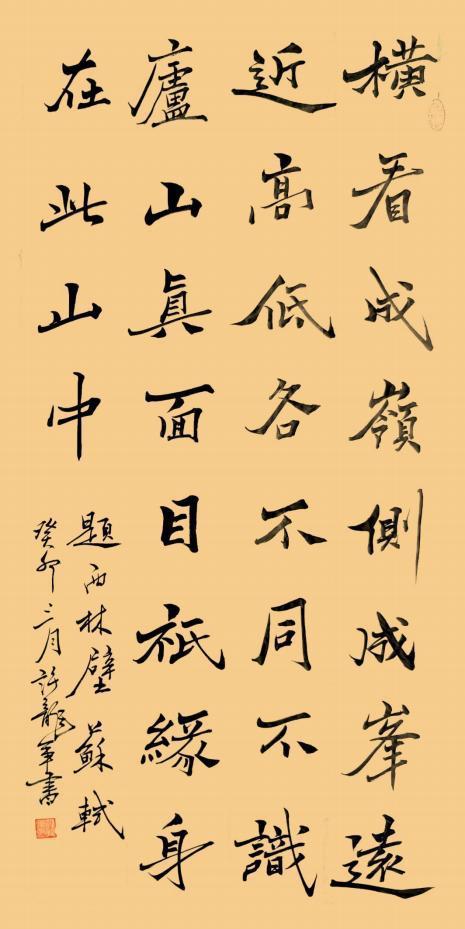 橫看成嶺側成峯遠
近高低各不同不識
廬山真面目祇緣身
在此山中
題西林壁 蘇軾
癸卯三月許龍軍書